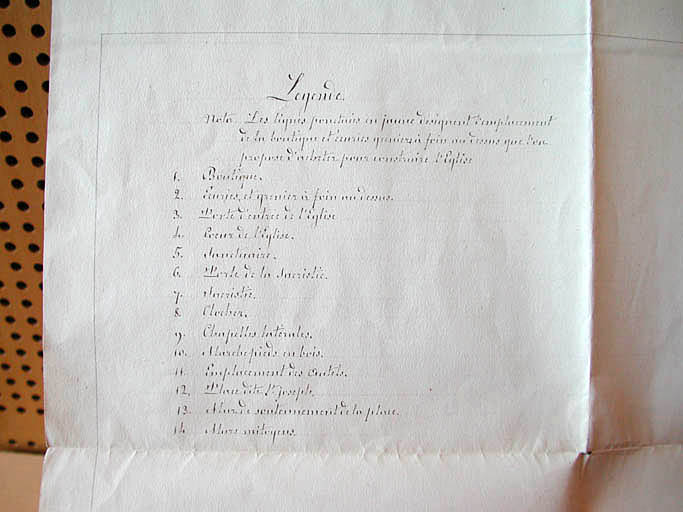 Légende.
Nota. Les lignes ponctuées en jaune désignent l'emplacement
de la boutique et écuries grenier à foin au dessus que l'on
propose d'acheter pour construire l'Eglise
1. Boutique.
2. Ecuries, et grenier à foin au dessus.
3. Porte d'entrée de l'Eglise
4. Cœur de l'Eglise.
5. Sanctuaire.
6. Porte de la Sacristie.
7. Sacristie.
8. Clocher.
9. Chapelles latérales.
10. Marchepieds en bois.
11. Emplacement des Autels.
12. Place dite St Joseph.
13. Mur de soutennement de la place.
14. Murs mitoyens.